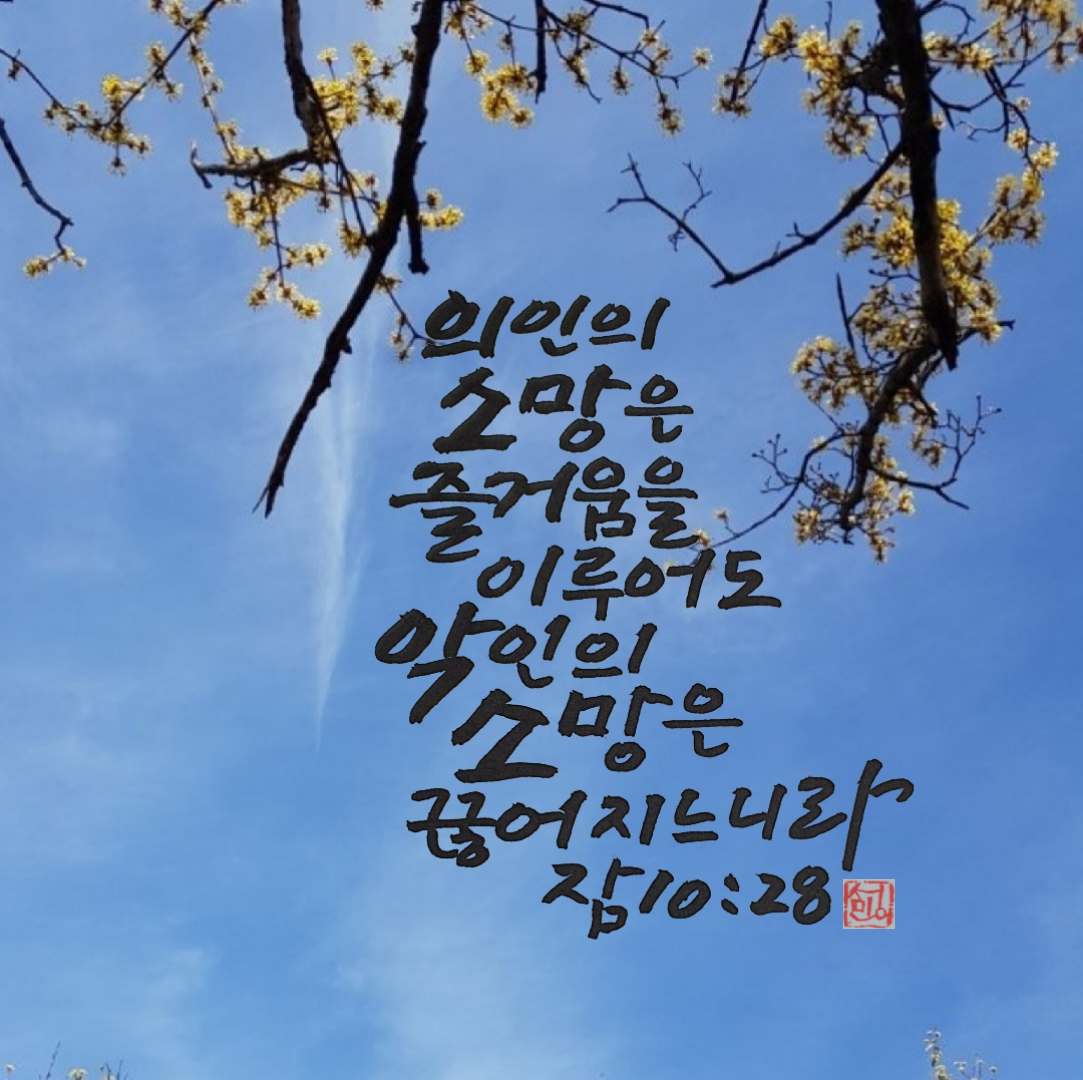 의인의
소망은
즐거움을
이루어도
악인의
소망은
끊어지느니라
잠10:28